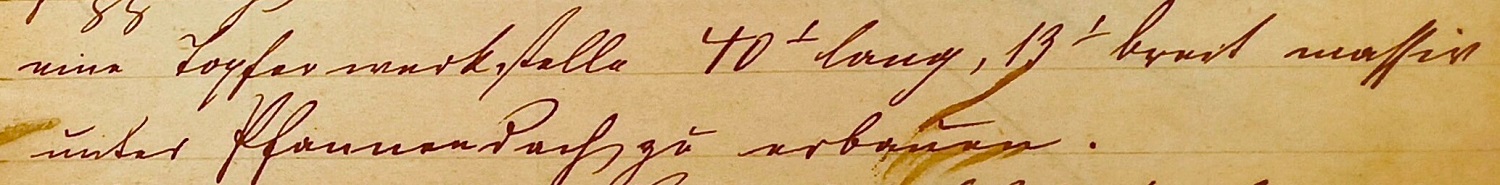 eine Töpferwerkstelle 40' lang, 13' breit massiv
unter Pfannendach zu erbauen.